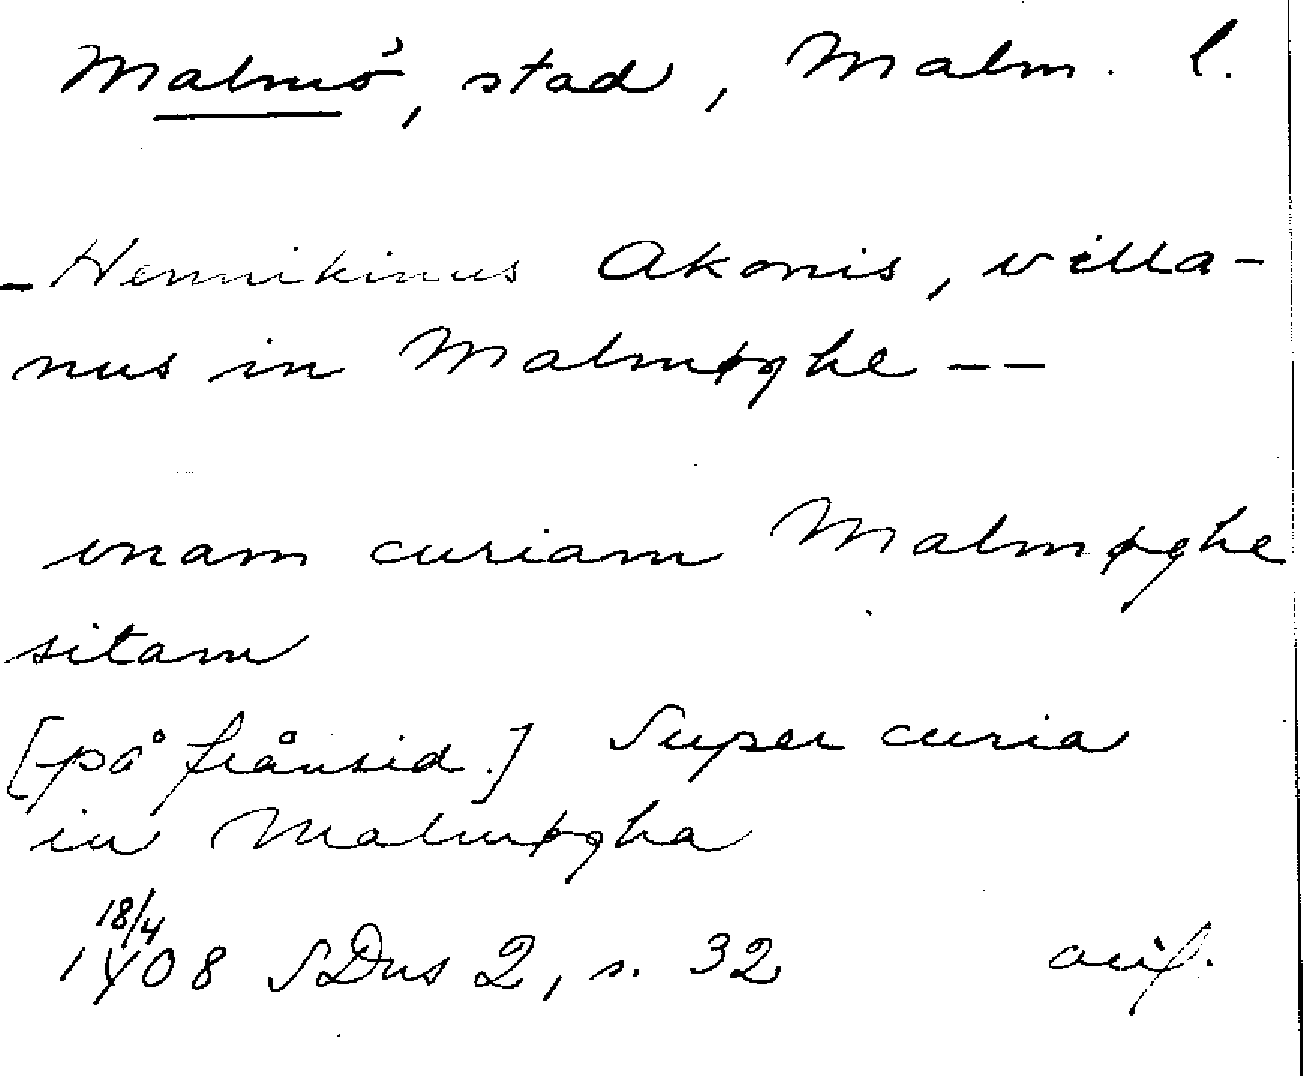 Malmö, stad, Malm. l.
- Hennikinus Akonis, villa-
nus in Malmøghe --
vnam curiam Malmøghe
sitam
[på frånsid.] Super curia
in Malmøgha
18/4
1408 SDns 2, s. 32